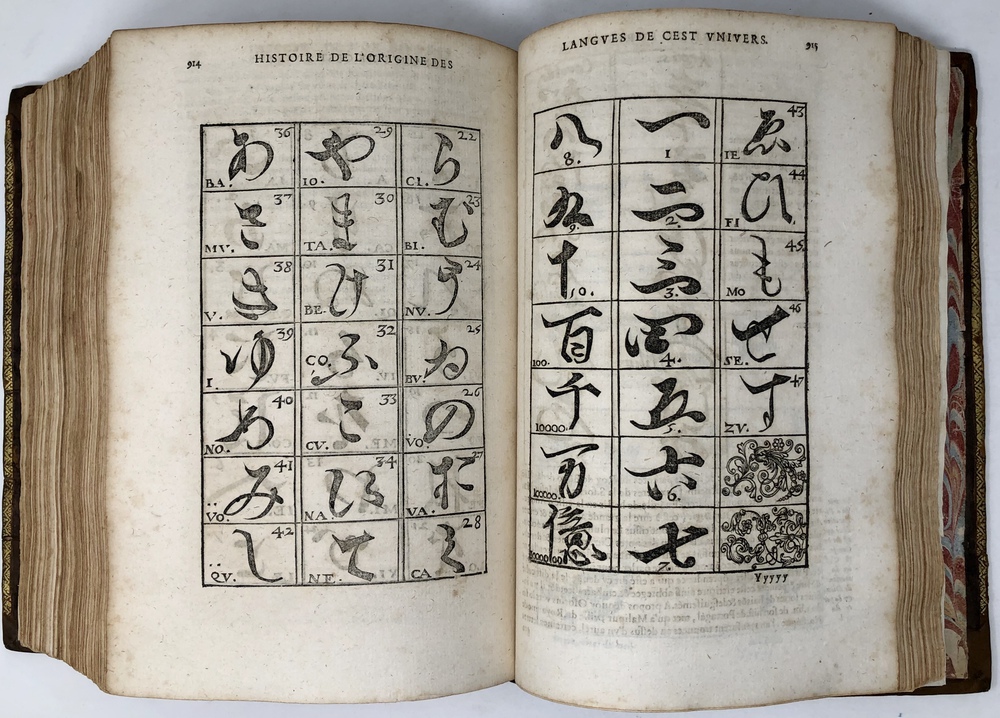 914 HISTOIRE DE L'ORIGINE DES
あ 36 BA. や 29 IO. ら 22 CI.
さ 37 MV. ま 30 TA. む 23 BI.
き 38 V. け 31 BE. う 24 NV.
ゆ 39 I. ふ 32 CO. ゐ 25 BV.
め 40 NO. こ 33 CV. の 26 VO.
み 41 VO. え 34 NA. お 27 VA.
し 42 QV. て NE. く 28 CA
LANGVES DE CEST VNIVERS. 915
八 8. 一 1 ゑ 43 IE
九 9. 二 2. ひ 44 FI
十 10. 三 3. も 45. MO
百 100. 四 4. せ 46 SE.
千 10000. 五 5. す 47 ZV.
万 100000. 六 6.
億 七 7.
Yyyyy